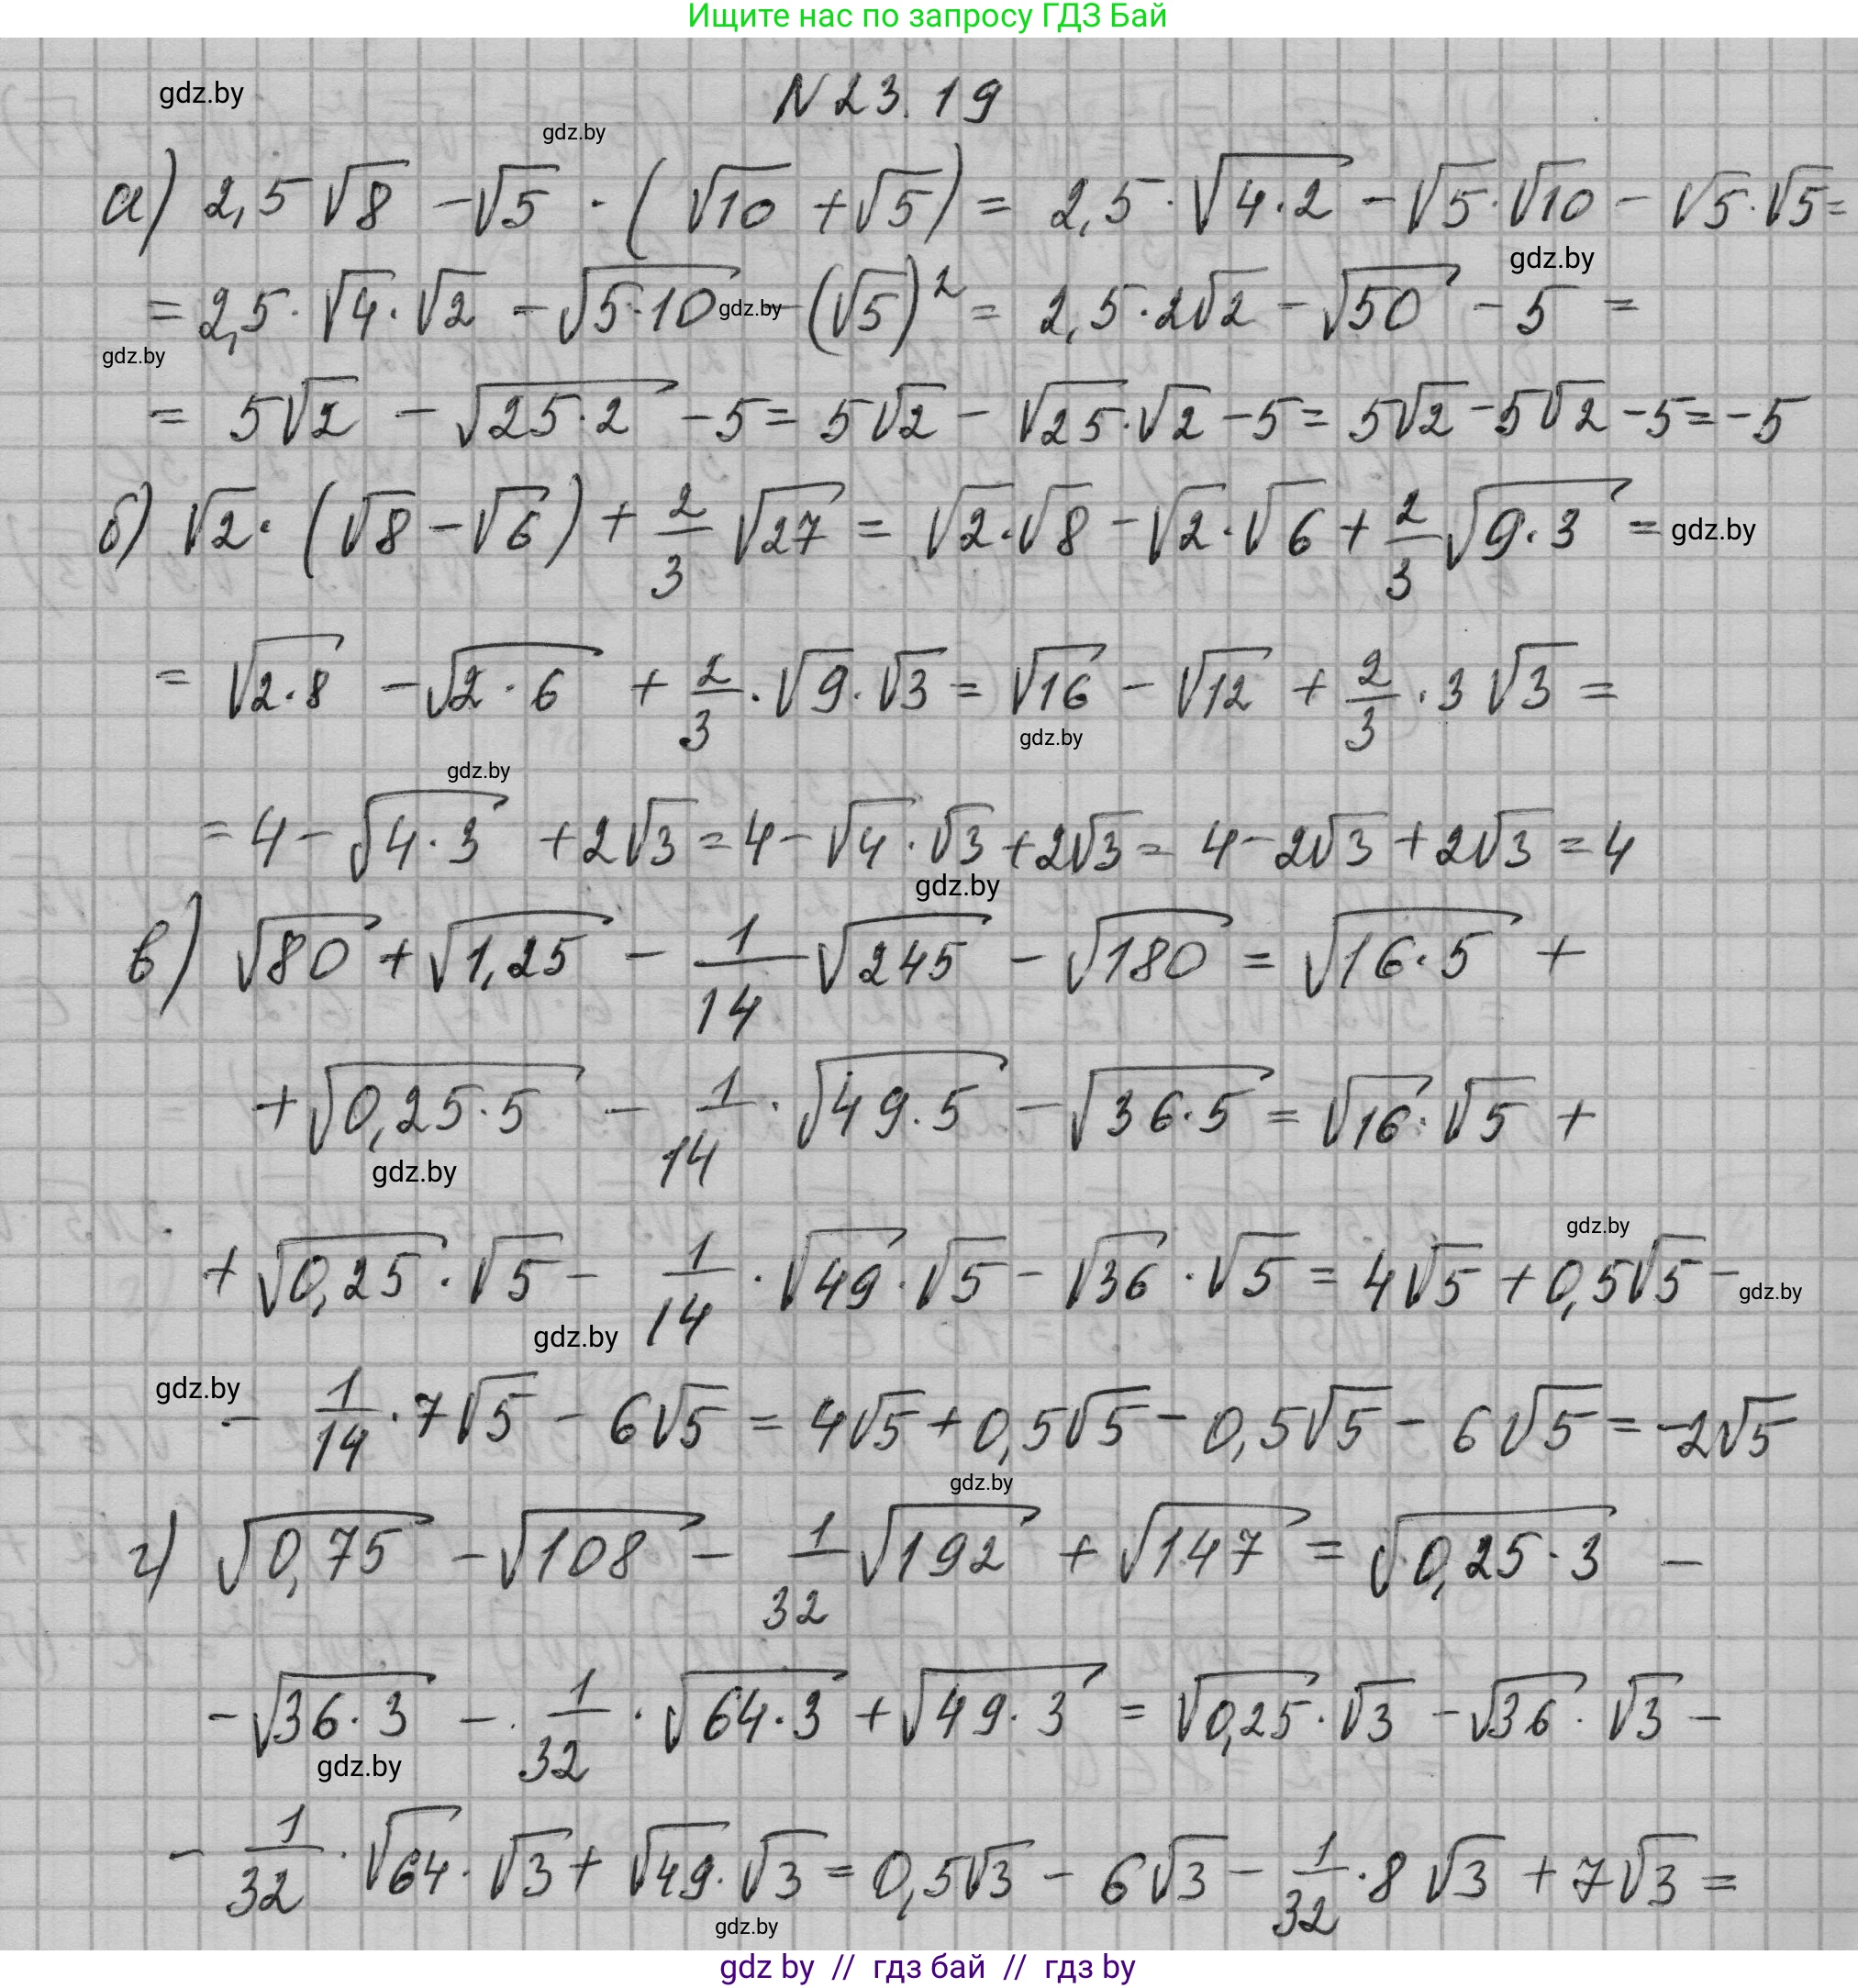 Ищите нас по запросу ГДЗ Бай
gdz.by
N 23.19
gdz.by
а) 2,5 √8 - √5 · (√10 + √5) = 2,5 · √(4·2) - √5·√10 - √5·√5 =
gdz.by
= 2,5 · √4 · √2 - √(5·10) gdz.by - (√5)² = 2,5 · 2√2 - √50 - 5 =
gdz.by
= 5√2 - √(25·2) - 5 = 5√2 - √25·√2 - 5 = 5√2 - 5√2 - 5 = -5
б) √2 · (√8 - √6) + 2/3 √27 = √2·√8 - √2·√6 + 2/3 √(9·3) = gdz.by
= √(2·8) - √(2·6) + 2/3 · √9 · √3 = √16 - √12 + 2/3 · 3 √3 =
gdz.by
gdz.by
= 4 - √(4·3) + 2√3 = 4 - √4 · √3 + 2√3 = 4 - 2√3 + 2√3 = 4
gdz.by
в) √80 + √1,25 - 1/14 √245 - √180 = √(16·5) +
+ √(0,25·5) - 1/14 · √(49·5) - √(36·5) = √16 · √5 +
gdz.by
gdz.by
+ √0,25 · √5 - 1/14 · √49 · √5 - √36 · √5 = 4√5 + 0,5√5 - gdz.by
gdz.by
gdz.by
- 1/14 · 7√5 - 6√5 = 4√5 + 0,5√5 - 0,5√5 - 6√5 = -2√5
gdz.by
г) √0,75 - √108 - 1/32 √192 + √147 = √(0,25·3) -
- √(36·3) - 1/32 · √(64·3) + √(49·3) = √0,25 · √3 - √36 · √3 -
gdz.by
- 1/32 · √64 · √3 + √49 · √3 = 0,5√3 - 6√3 - 1/32 · 8 √3 + 7√3 =
gdz.by
gdz by // гдз бай // гдз by